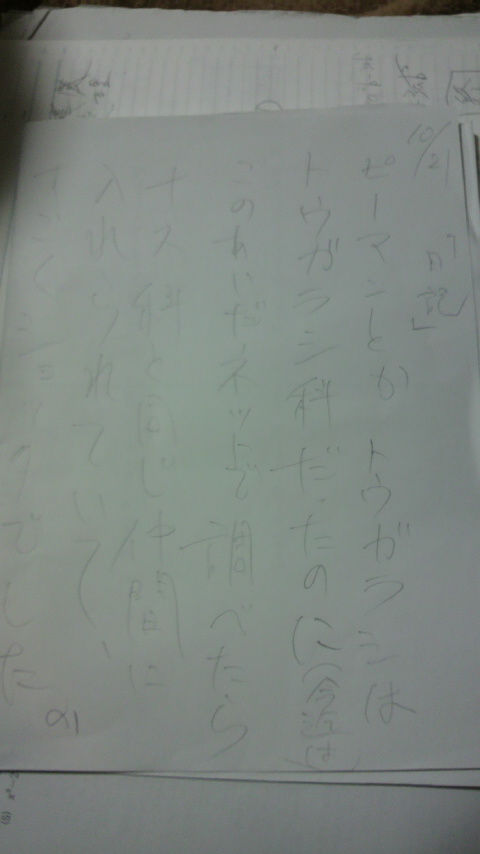 10/21
「日記」
ピーマンとか トウガラシは
トウガラシ科だったのに(今迄は)
このあいだネットで調べたら
ナス科と同じ仲間に
入れられていて、
すごくショックでした